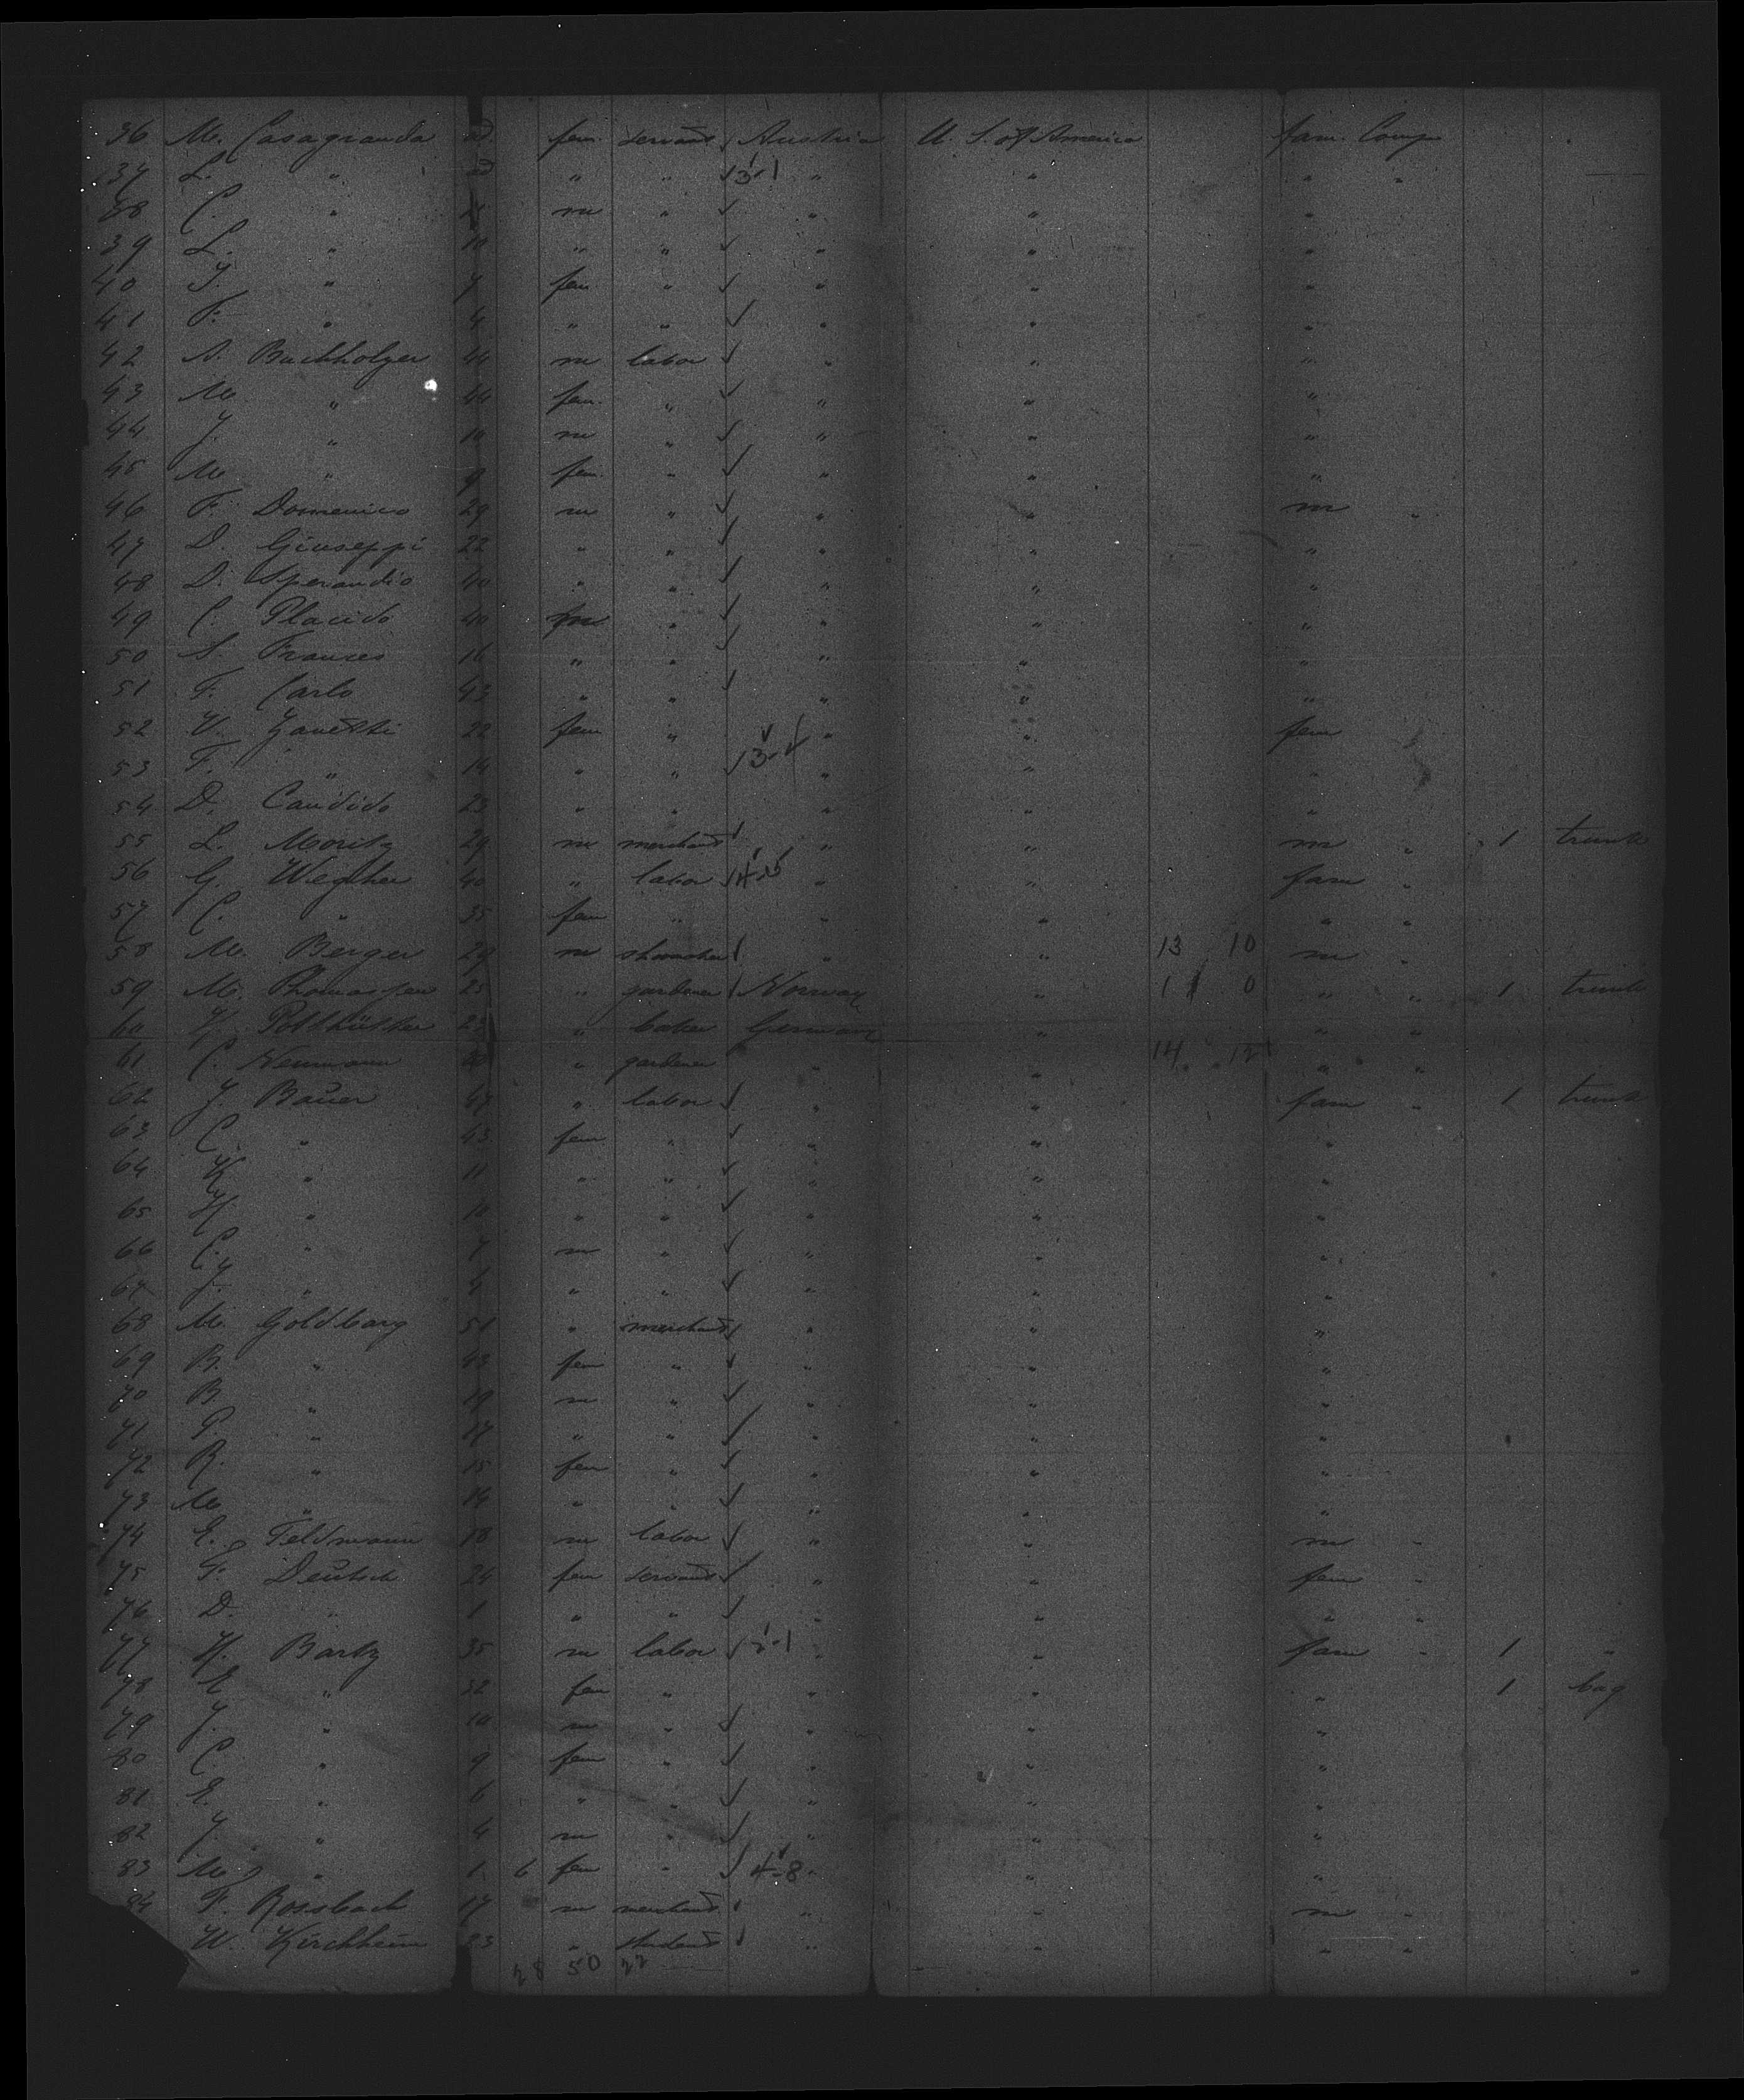 36 M. Casagranda fem. servant Austria U. S. of America fam. Comp
37 L. " " " 3-1 " " " "
38 C. " m " ✓ " " "
39 L. " 10 " " ✓ " " "
40 J. " 7 fem " ✓ " " "
41 F. " 4 " " ✓ " " "
42 A. Buchholzer 44 m labor ✓ " " "
43 M. " 44 fem. " ✓ " " "
44 J. " 10 m " ✓ " " "
45 M. " 9 fem. " ✓ " " "
46 F. Domenico 29 m " ✓ " " m "
47 D. Giuseppi 22 " " ✓ " " "
48 D. Sperandio 40 " " ✓ " " "
49 C. Placido 40 " ✓ " " "
50 S. Frances 16 " " ✓ " " "
51 F. Carlo 43 " " ✓ " " "
52 V. Zanetti 22 fem " " " fem
53 F. " 14 " " ✓ 3-4 " " "
54 D. Candido 23 " " " " "
55 L. Moritz 29 m merchant " " m " 1 trunk
56 G. Wegher 40 " labor ✓ " " fam "
57 C. " 35 fem " " " " "
58 M. Berger 29 m shoemaker " " 13 10 m "
59 M. Thomassen 25 " gardener Norway " 1 0 " " 1 trunk
60 23 " baker Germany " " "
61 C. Neumann " gardener " " 14 12 " "
62 J. Bauer 67 " labor ✓ " " fam " 1 trunk
63 C. " 43 fem " ✓ " " "
64 K " 11 " " ✓ " " "
65 H " 10 " " ✓ " " "
66 C. " 7 m " ✓ " " "
67 J. " 4 " " ✓ " " "
68 M. Goldbarg 51 " merchant " " "
69 B. " 43 fem " ✓ " " "
70 B " 19 m " ✓ " " "
71 P. " 17 " " ✓ " " "
72 R. " 15 fem " ✓ " " "
73 M. " 14 " " ✓ " " "
74 E. Feldmann 18 m labor ✓ " " m "
75 F. Deutsch 24 fem servant ✓ " " fem "
76 D. " 1 " " ✓ " " " "
77 H. Bartz 35 m labor ✓ 2-1 " " fam " 1 "
78 E " 32 fem " " " " 1 bag
79 J. " 10 m " ✓ " " "
80 C. " 9 fem " ✓ " " "
81 E. " 6 " " ✓ " " "
82 J. " 4 m " ✓ " " "
83 M. " 1 6 fem " ✓ 4-8 " " "
84 F. Rossbach 17 m merchant " " m "
W. Kirchheim 23 " student " " " "
28 50 22